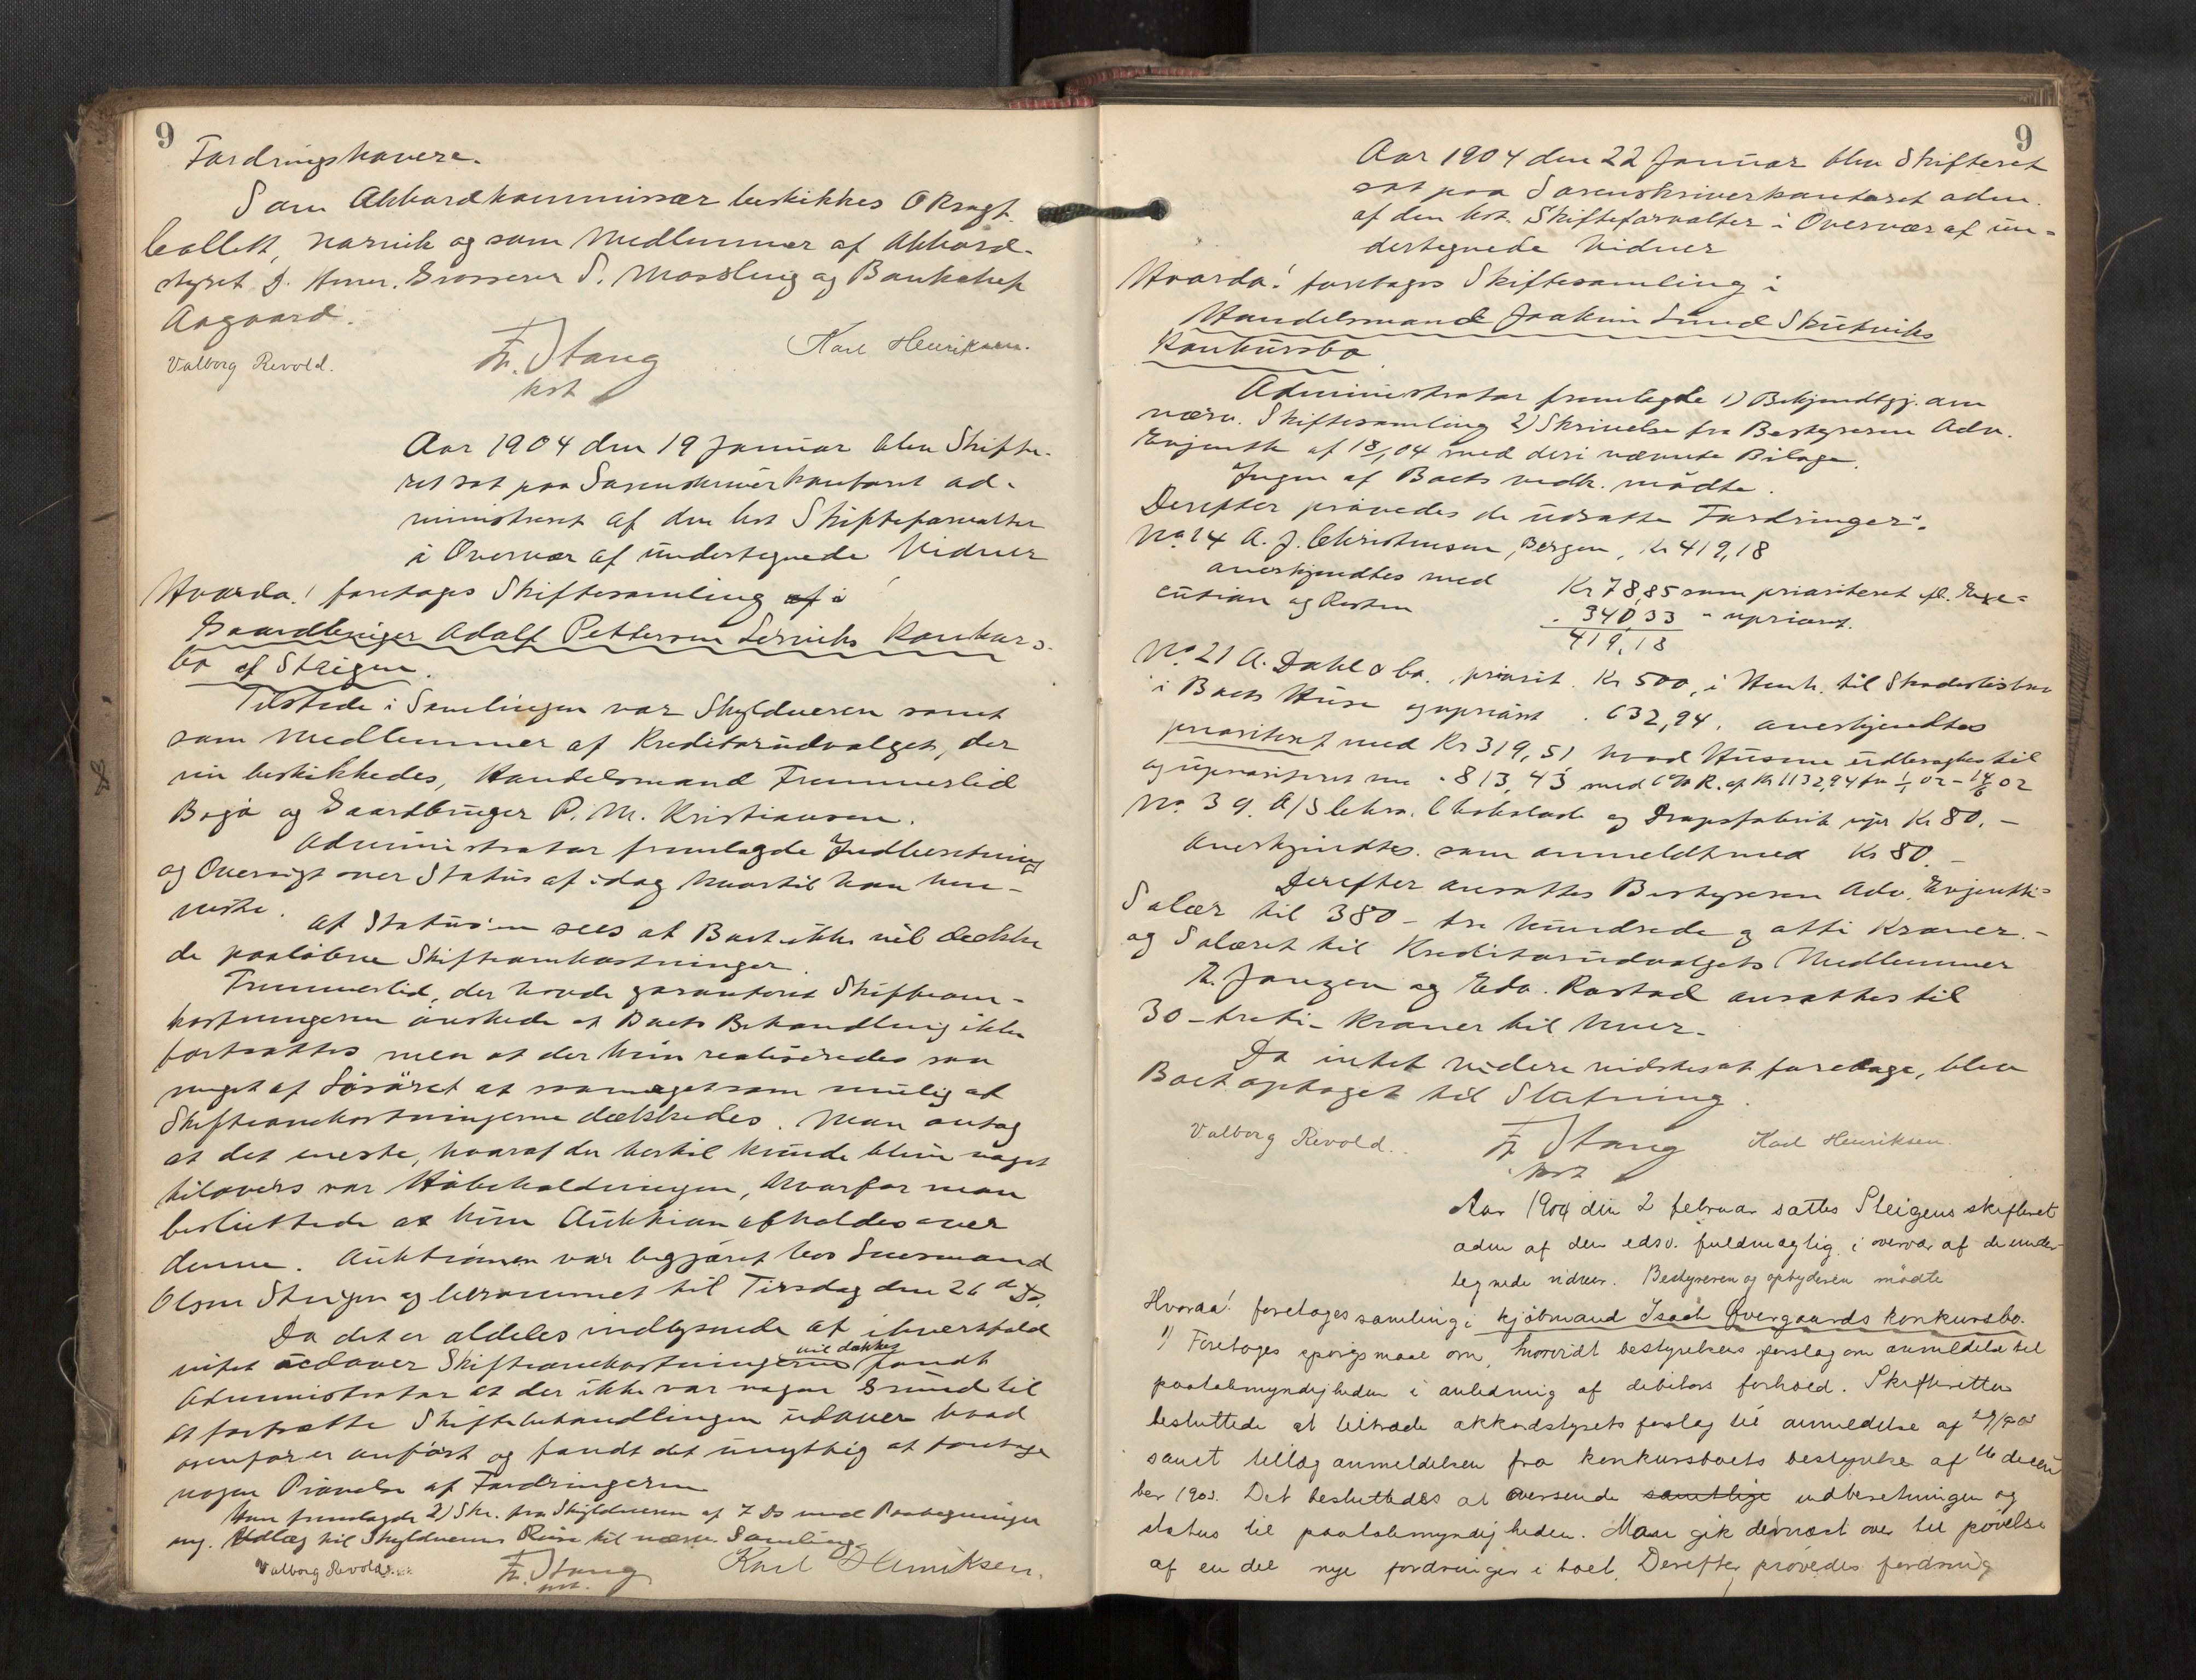 9
Fordringshavere.
Som Akkordkommissær beskikkes ORsagf.
Collett, Narvik og som Medlemmer af Akkord-
styret D. Herrer. Grosserer S. Mosling og Bankchef
Aagaard.
Valborg Revold. Fr. Stang Karl Henriksen.
kst
Aar 1904 den 19 Januar blev Skifte-
ret sat paa Sorenskriverkontoret ad-
ministreret af den kst Skifteforvalter
i Overvær af undertegnede Vidner
Hvorda! foretages Skiftesamling af i
Gaardbruger Adolf Pettersen Lerviks Konkurs-
bo af Steigen.
Tilstede i Samlingen var Skyldneren samt
som Medlemmer af Kreditorudvalget, der
nu beskikkedes, Handelsmand Trummerlid
Bogø og Gaardbruger P. M. Kristiansen.
Administrator fremlagde Indberetning
og Oversigt over Status af idag hvortil han hen-
viste.
Af Status'en sees at Boet ikke vil dække
de paaløbne Skifteomkostninger.
Trummerlid, der havde garanteret Skifteom-
kostningerne ønskede at Boets Behandling ikke
fortsattes men at der kun realiseredes saa
meget af Løsøret at saameget som mulig af
Skifteomkostningerne dækkedes. Man antog
at det eneste, hvoraf der hertil kunde blive noget
tilovers var Høbeholdningen, hvorfor man
besluttede at kun Auktion afholdes over
denne. Auktionen var begjæret hos Lensmand
Olsen Steigen og berammet til Tirsdag den 26 ds Ds.
Da det er aldeles indlysende at ihvertfald
intet udover Skifteomkostningerne vil dækkes fandt
Administrator at der ikke var nogen Grund til
at fortsætte Skiftebehandlingen udover hvad
ovenfor er anført og fandt det unyttig at foretage
nogen Prøvelse af Fordringerne
Han fremlagde 2) Skr. fra Skyldneren af 7 Ds med Paategninger
ang. Udlæg til Skyldnerens Reise til nærv. Samling.
Valborg Revold. Fr. Stang Karl Henriksen.
kst.
9
Aar 1904 den 22 Januar blev Skifteret
sat paa Sorenskriverkontoret adm.
af den kst. Skifteforvalter i Overvær af un-
dertegnede Vidner
Hvorda! foretages Skiftesamling i
Handelsmand Joakim Lund Skutviks
Konkursbo
Administrator fremlagde 1) Bekjendtgj. om
nærv. Skiftesamling 2) Skrivelse fra Bestyreren Adv.
Evjenth af 18/1 04 med deri nævnte Bilage.
Ingen af Boets vedk. mødte.
Derefter prøvedes de udsatte Fordringer:
No 14 A. J. Christensen, Bergen, Kr 419,18
anerkjendtes med Kr 78,85 som prioriteret ifl. Exe-
cution og Resten - 340,33 - uprioret.
419,18
No 21 A. Dahl & Co. priorit. Kr 500, i Henh. til Skadesløsbrev
i Boets Huse og upriort. 632,94. anerkjendtes
prioriteret med Kr 319,51 hvad Husene udbragtes til
og uprioriteret med - 813,43 med 6% R. af Kr 1132,94 fra 1/1 02 - 14/6 02
No. 39. A/S Chra. Chokolade og Dropsfabrik upr Kr 80.-
Anerkjendtes som anmeldt med Kr 80.-
Derefter ansattes Bestyreren Adv. Evjenths
Salær til 380 - tre hundrede og otti Kroner.-
og Salæret til Kreditorudvalgets Medlemmer
R. Jangen og Edv. Rastad ansattes til
30 - treti - Kroner til hver.
Da intet videre vidstes at foretage, blev
Boet optaget til Slutning.
Valborg Revold. Fr. Stang Karl Henriksen.
kst
Aar 1904 den 2 februar sattes Steigens skifteret
adm af den edsv. fuldmægtig i overvær af de under-
tegnede vidner. Bestyreren og opbyderen mødte
Hvorda! foretoges samling i kjøbmand Isach Øvergaards konkursbo.
1) Foretoges spørgsmaal om, hvorvidt bestyrelsens forslag om anmeldelse til
paatalemyndigheden i anledning af debitors forhold. Skifteretten
besluttede at tiltræde akkordstyrets forslag til anmeldelse af
samt tillæg anmeldelsen fra konkursboets bestyrelse af 16 decem
ber 1903. Det besluttedes at oversende samtlige indberetningen og
status til paatalemyndigheden. Man gik dernæst over til prøvelse
af en del nye fordringer i boet. Derefter prøvedes fordring